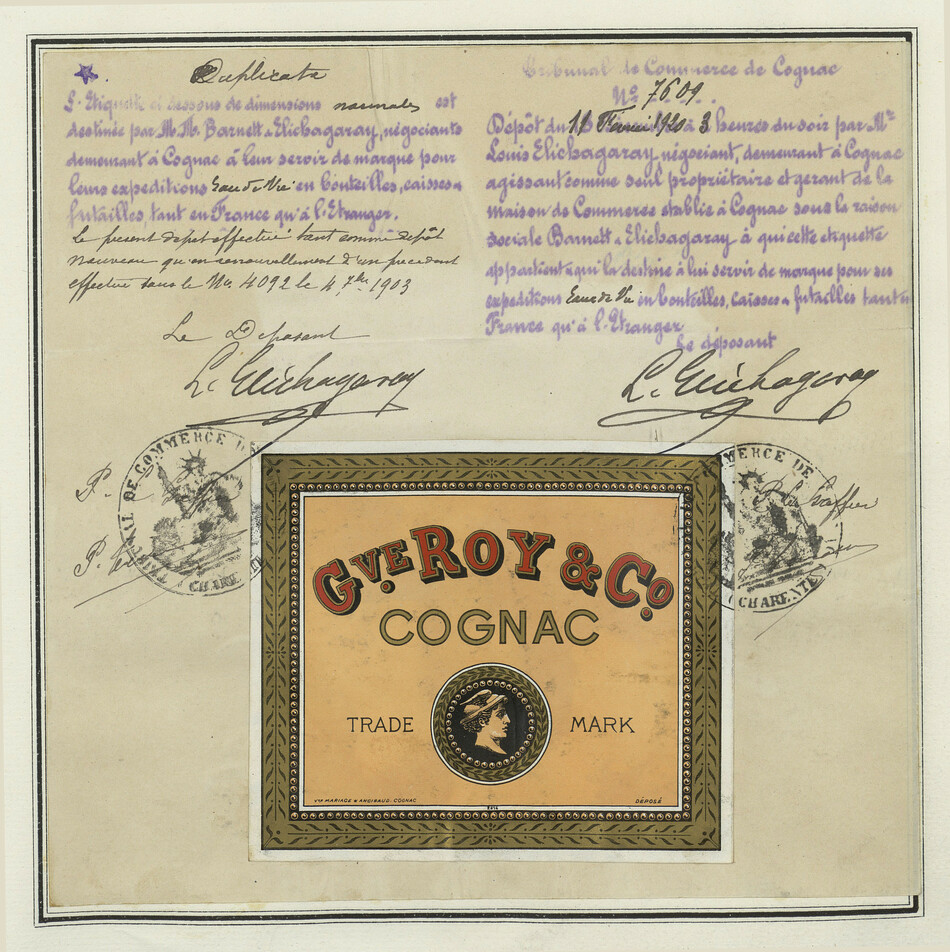 Duplicata
L'Etiquette ci dessous de dimensions normales est
destinée par M.M. Barnett & Elichagaray, négociants
demeurant à Cognac à leur servir de marque pour
leurs expeditions Eau de Vie en bouteilles, caisses &
futailles, tant en France qu'à l'Etranger.
Le present depot effectué tant comme depôt
nouveau qu'en renouvellement d'un precedent
effectué sous le No. 4092 le 4 7bre 1903
Le Deposant
L. Elichagaray
Tribunal de Commerce de Cognac
No 7609
Dépôt du 11 Fevrier 1920 à 3 heures du soir par Mr
Louis Elichagaray négociant, demeurant à Cognac
agissant comme seul propriétaire et gerant de la
maison de Commerce etablie à Cognac sous la raison
sociale Barnett & Elichagaray à qui cette etiquette
appartient & qui la destine à lui servir de marque pour ses
expeditions Eau de Vie en bouteilles, caisses & futailles tant en
France qu'à l'Etranger
Le déposant
L. Elichagaray
TRIBUNAL DE COMMERCE DE
(CHARENTE)
COMMERCE DE
(CHARENTE)
P. Le Greffier
GVE ROY & CO
COGNAC
TRADE MARK
VVE MARIAGE & ANGIBAUD-COGNAC
DÉPOSÉ